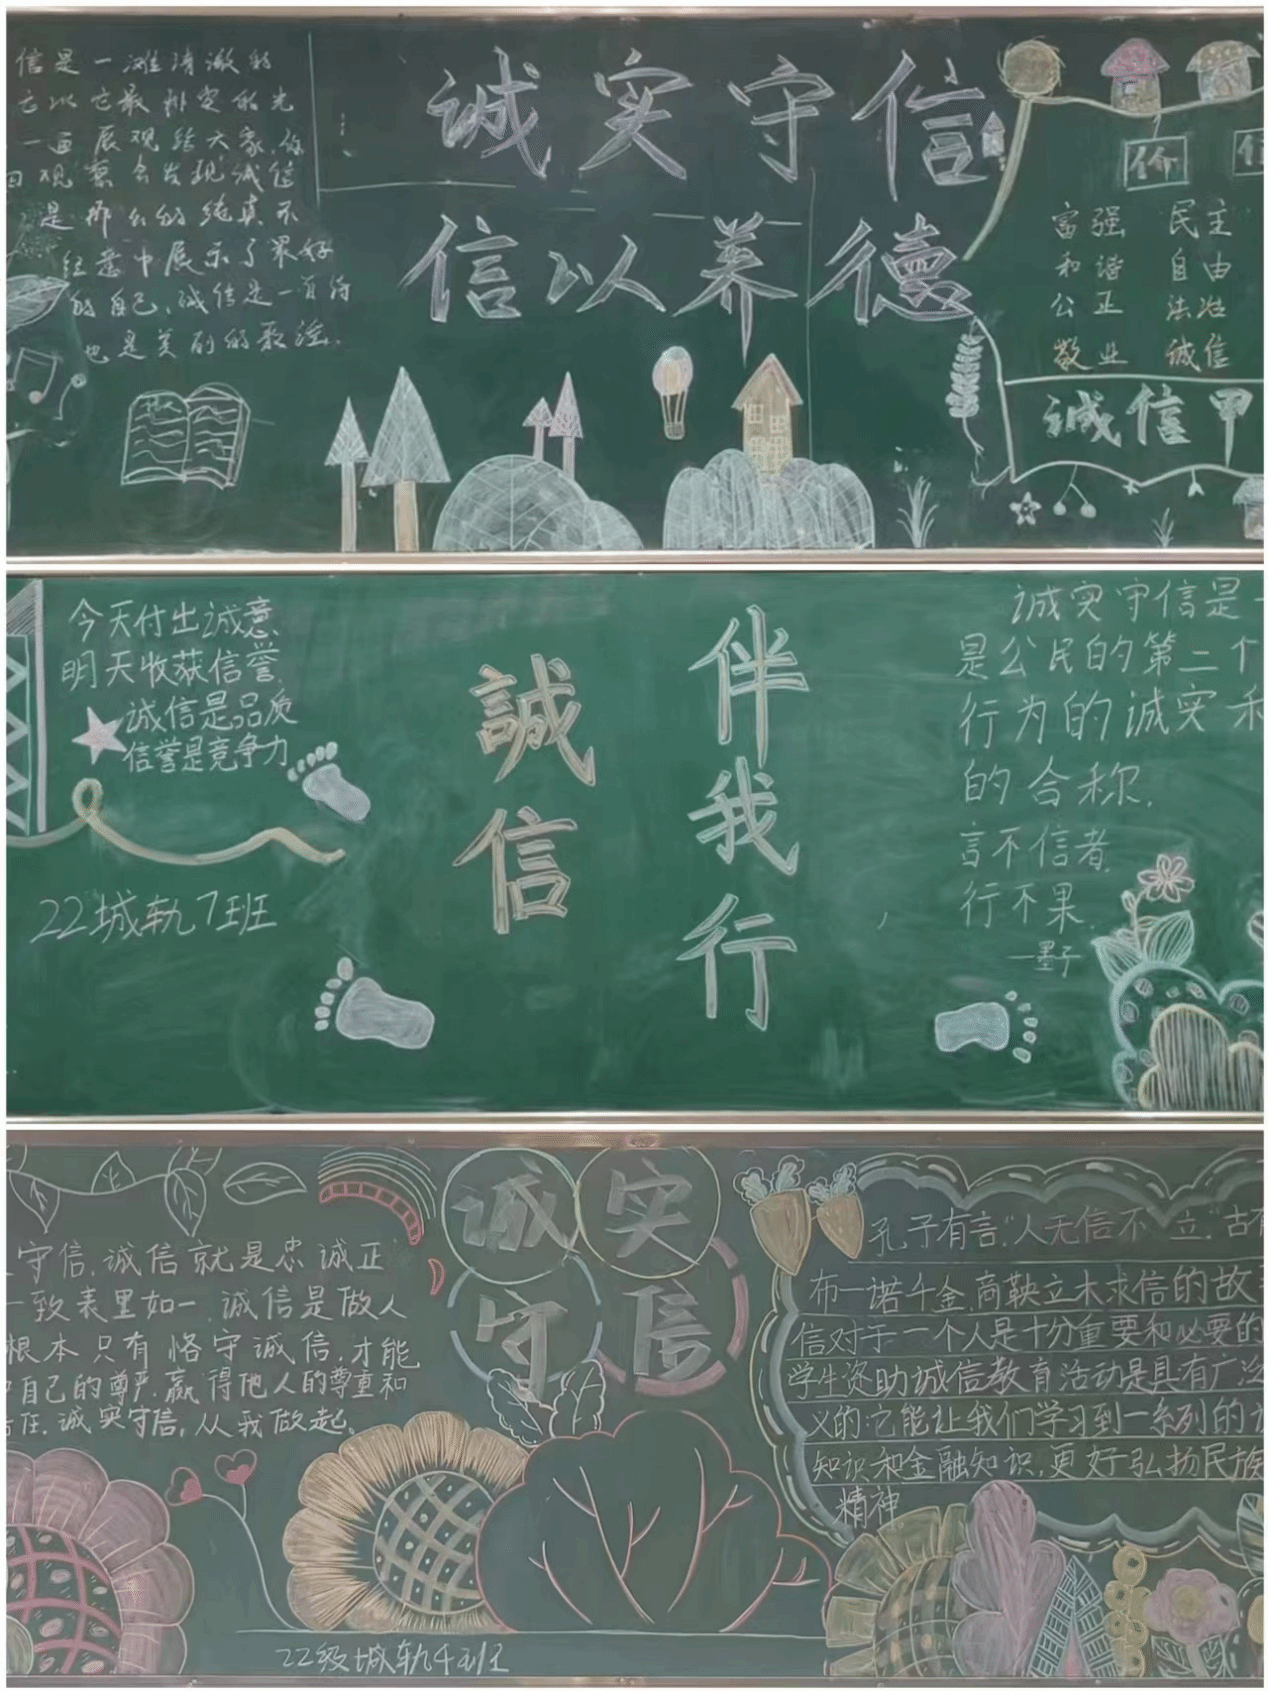 信是一滩清澈的
它以它最朴实的光
一面展现给大家,你
观察会发现诚信
是那么的纯真不
经意中展示了最好
的自己,诚信是一首诗
也是美丽的歌谣.
诚实守信
信以养德
价
富强 民主
和谐 自由
公正 法治
敬业 诚信
诚信甲
今天付出诚意
明天收获信誉
诚信是品质
信誉是竞争力
22城轨7班
誠信
伴我行
诚实守信是
是公民的第二个
行为的诚实和
的合称.
言不信者,
行不果.
一墨子
诚实
守信
守信,诚信就是忠诚正
一致表里如一,诚信是做人
根本只有恪守诚信,才能
自己的尊严,赢得他人的尊重和
信任.诚实守信,从我做起。
孔子有言:"人无信不立".古有
布一诺千金,商鞅立木求信的故
信对于一个人是十分重要和必要的
学生资助诚信教育活动是具有广泛
义的:它能让我们学习到一系列的
知识和金融知识,更好弘扬民族
精神
22级城轨4班